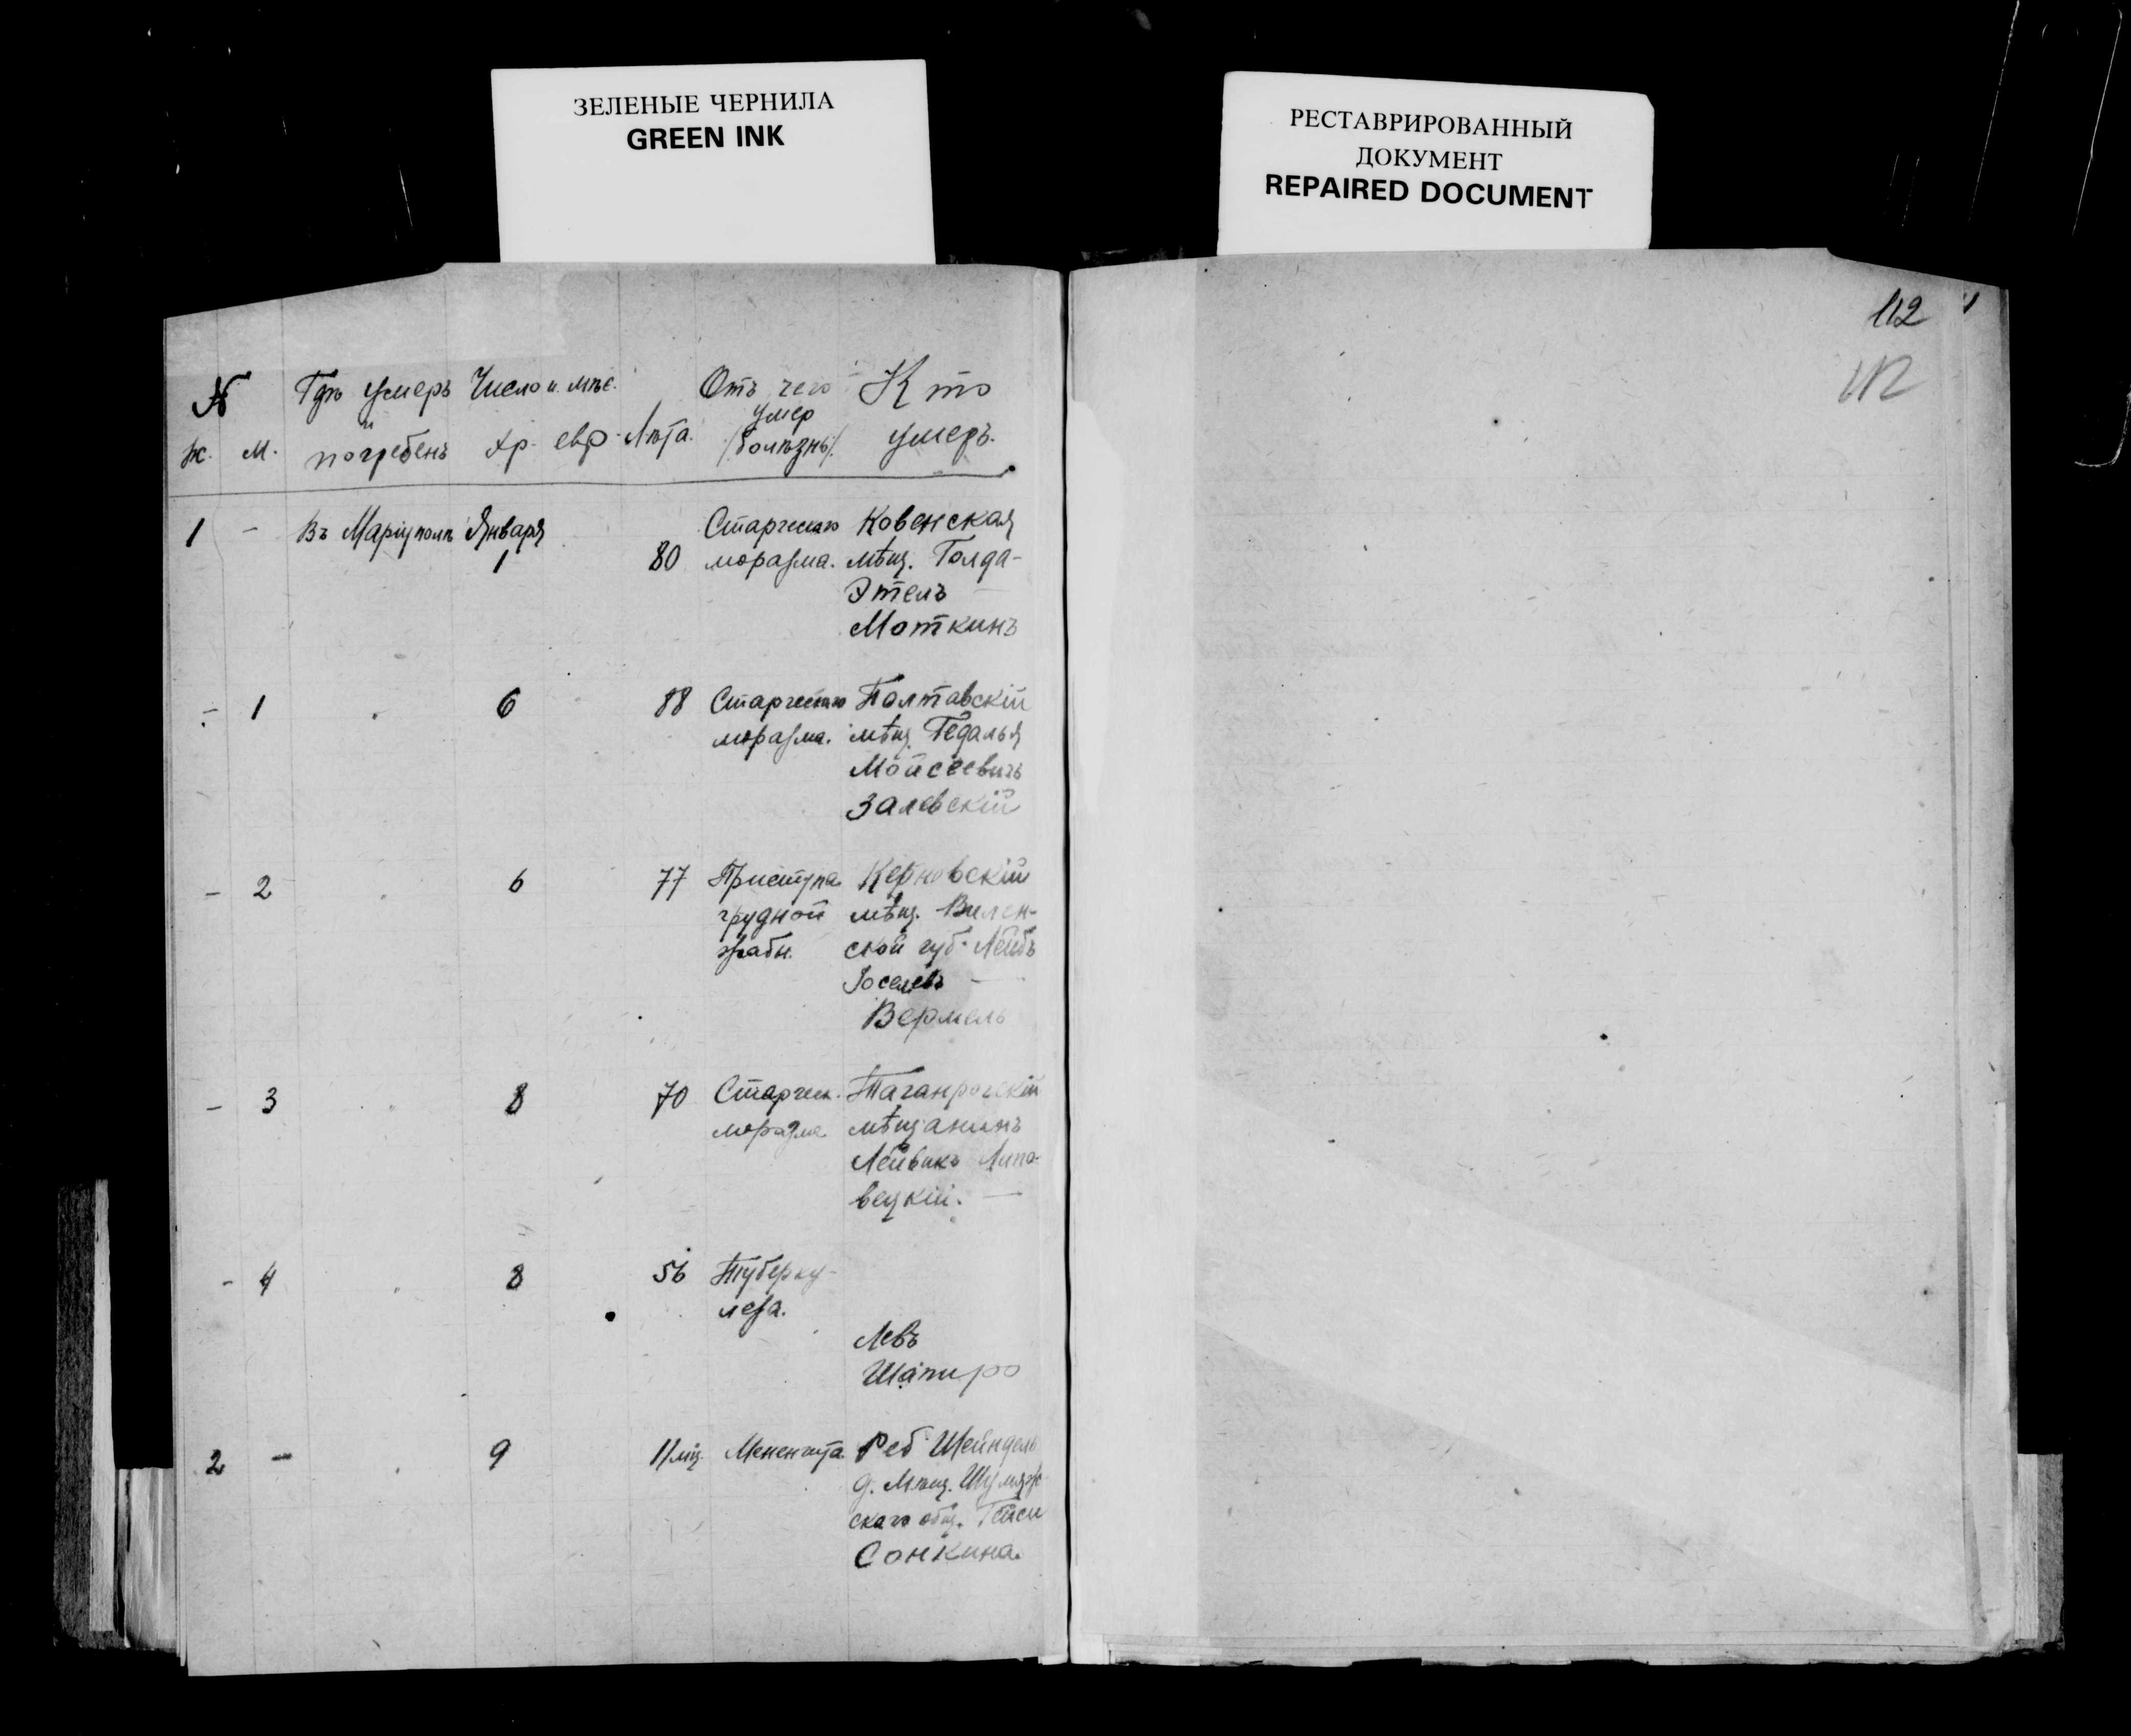 ЗЕЛЕНЫЕ ЧЕРНИЛА
GREEN INK
РЕСТАВРИРОВАННЫЙ
ДОКУМЕНТ
REPAIRED DOCUMENT
112
112
№ Гдѣ умеръ Число и мѣс. Отъ чего Кто
и умер
ж. м. погребенъ хр. евр. Лѣта. /болѣзнь/. умеръ.
1 - Въ Маріуполѣ Января Старческаго Ковенская
1 80 моразма. мѣщ. Голда-
Этель
Моткинъ
- 1 6 88 Старческаго Полтавскій
моразма. мѣщ. Гедалья
Мойсеевичъ
Залевскій
- 2 6 77 Приступа Керновскій
грудной мѣщ. Вилен-
жабы. ской губ. Лейбъ
Іоселевъ
Вермель
- 3 8 70 Старческ. Таганрогскій
моразма мѣщанинъ
Лейвикъ Липо-
вецкій.
- 4 8 56 Туберку-
леза.
Левъ
Шапиро
2 - 9 11 мц. Менингита. Реб. Шейндель
д. Мѣщ. Шумяж-
скаго общ. Гейси
Сонкина.